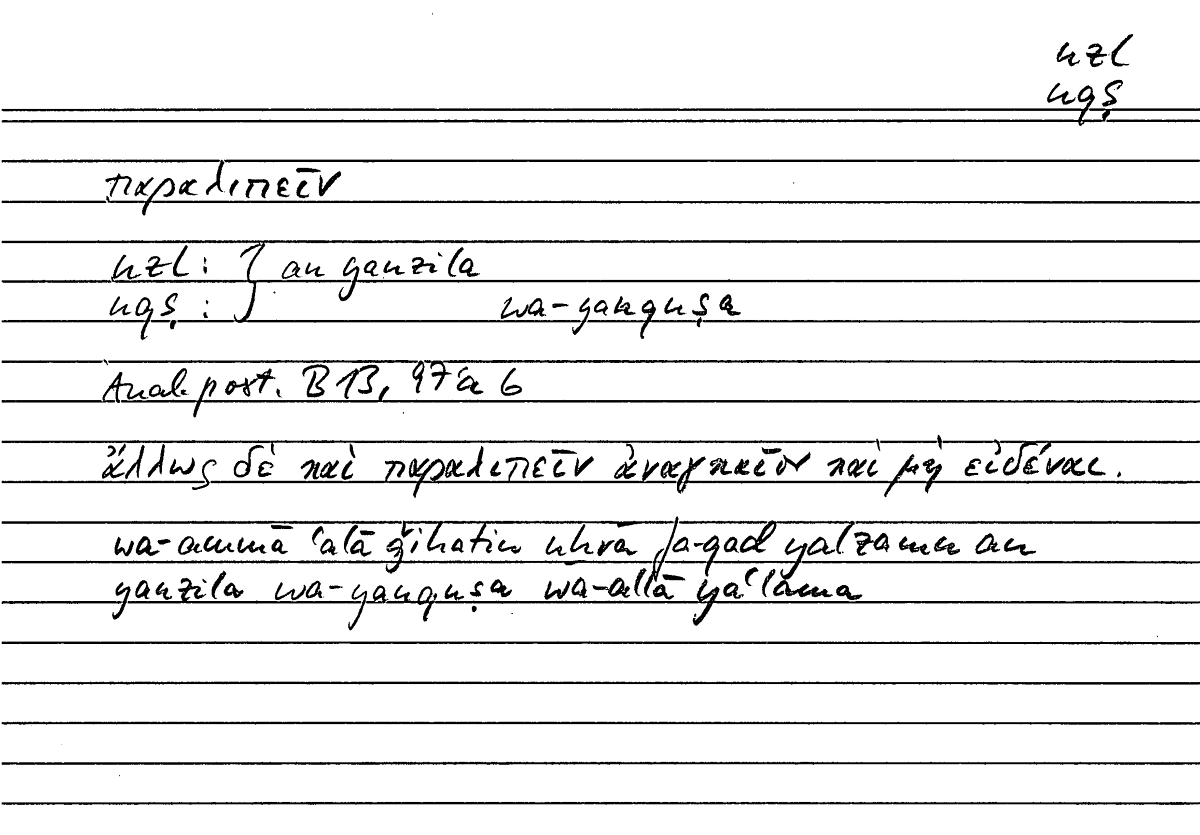 nzl
nqṣ
παραλιπεῖν
nzl : } an yanzila
nqṣ : } wa-yanquṣa
Anal. post. B 13, 97 a 6
ἄλλως δὲ καὶ παραλιπεῖν ἀναγκαῖον καὶ μὴ εἰδέναι.
wa-ammā ʿalā ǧihatin uḫrā fa-qad yalzamu an
yanzila wa-yanquṣa wa-allā yaʿlama